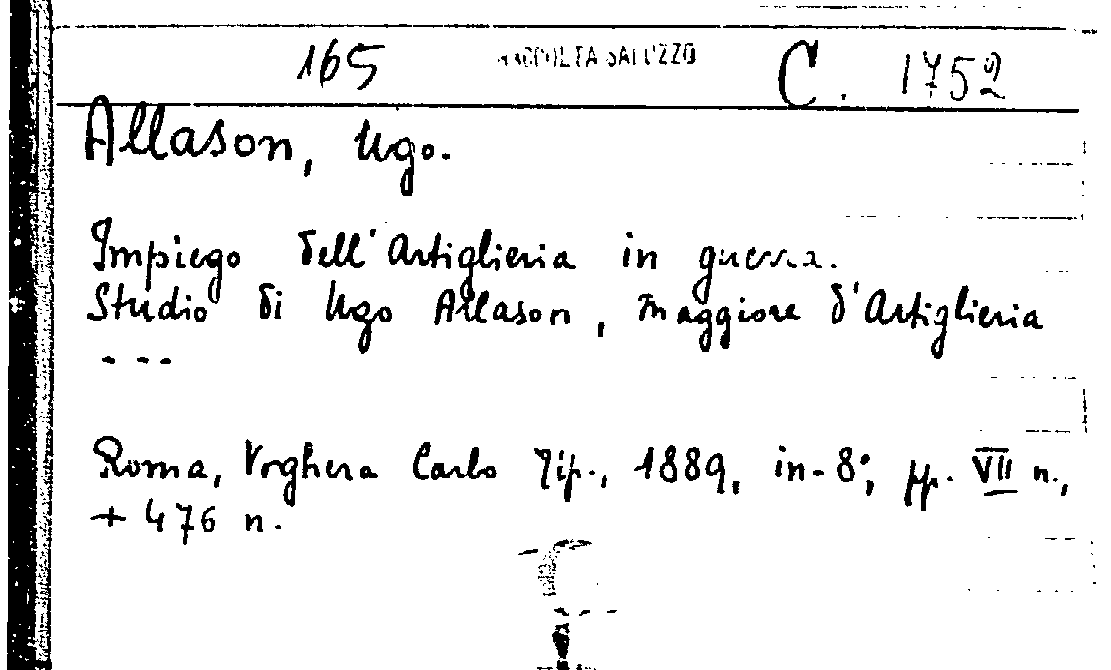 165 RACCOLTA SALUZZO C. 1752
Allason, Ugo.
Impiego dell'Artiglieria in guerra.
Studio di Ugo Allason, Maggiore d'Artiglieria
---
Roma, Voghera Carlo Tip., 1889, in-8°, pp. VII n.,
+ 476 n.